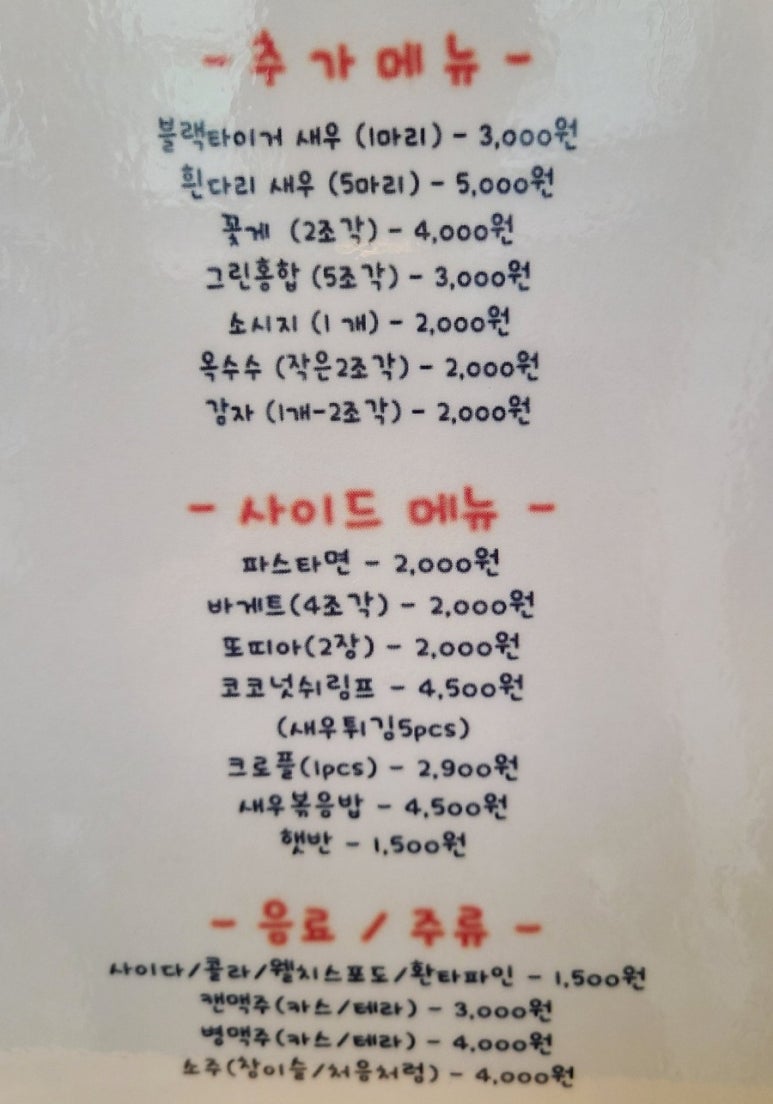 - 추가메뉴 -
블랙타이거 새우 (1마리) - 3,000원
흰다리 새우 (5마리) - 5,000원
꽃게 (2조각) - 4,000원
그린홍합 (5조각) - 3,000원
소시지 (1개) - 2,000원
옥수수 (작은2조각) - 2,000원
감자 (1개-2조각) - 2,000원
- 사이드 메뉴 -
파스타면 - 2,000원
바게트(4조각) - 2,000원
또띠아(2장) - 2,000원
코코넛쉬림프 - 4,500원
(새우튀김5pcs)
크로플(1pcs) - 2,900원
새우볶음밥 - 4,500원
햇반 - 1,500원
- 음료 / 주류 -
사이다/콜라/웰치스포도/환타파인 - 1,500원
캔맥주(카스/테라) - 3,000원
병맥주(카스/테라) - 4,000원
소주(참이슬/처음처럼) - 4,000원